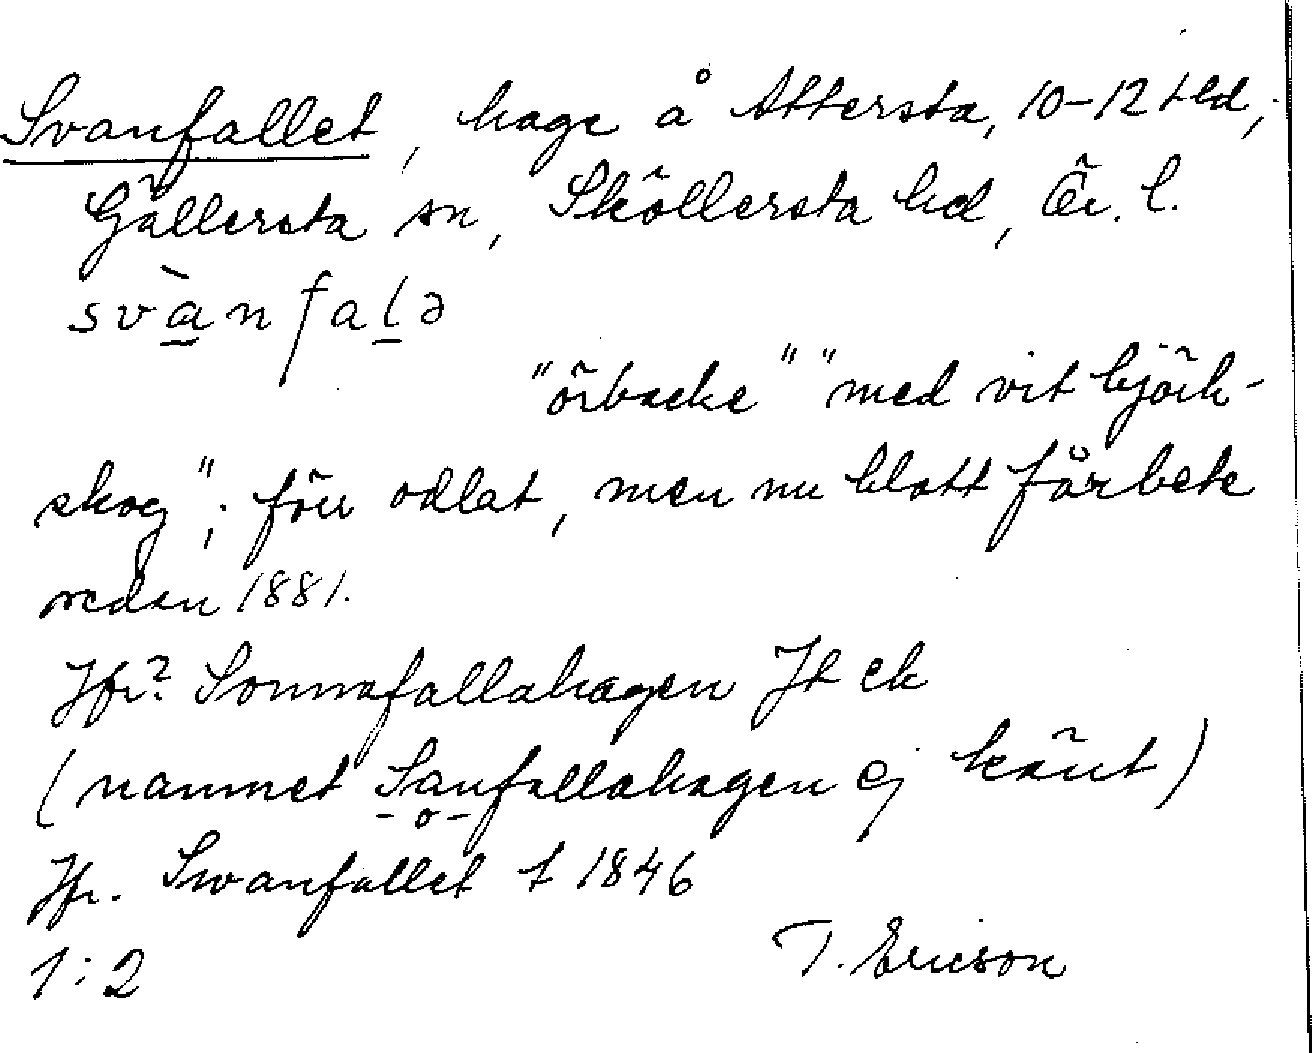 Svanfallet, hage å Attersta, 10-12 tld,
Gällersta sn, Sköllersta hd, Ör. l.
svànfalə
"örbacke" "med vit björk-
skog"; förr odlat, men nu blott fårbete
redan 1881.
Jfr? Sonnafallahagen Jt ek
(namnet Sanfallahagen ej känt)
-o-
Jfr. Swanfallet t 1846
1:2 T. Ericson